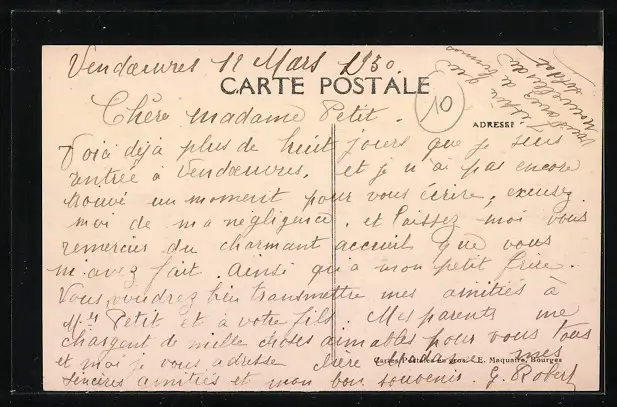 Vendœuvres 12 Mars 1930
CARTE POSTALE
10
ADRESSE
Chère madame Petit.
Voià dèjà plus de huit jours que je suis
rentrée à Vendœuvres, et je n'ai pas encore
trouvé un moment pour vous écrire, excusez
moi de ma négligence, et laissez moi vous
remercier du charmant accueil que vous
m'avez fait. Ainsi qu'a mon petit frère.
Vous voudrez bien transmettre mes amitiés à
Petit et à votre fils. Mes parents me
chargent de mille choses aimables pour vous tous
et moi je vous adresse chère Madame mes
Cartes Postales en gros. E. Maquaire, Bourges
sincères amitiés et mon bon souvenir. G. Robert